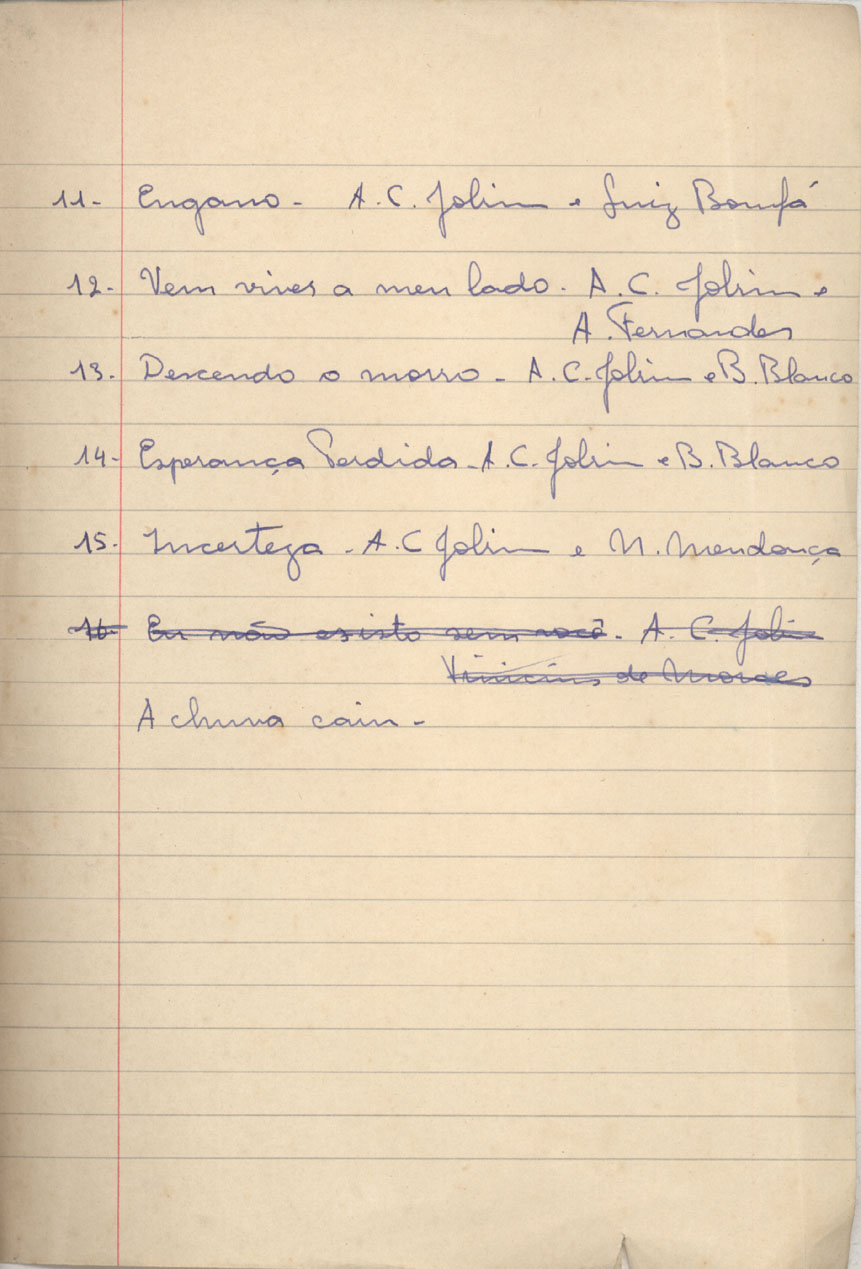 11- Engano - A. C. Jobim e Luiz Bomfá
12- Vem viver a meu lado - A. C. Jobim e
A. Fernandes
13- Descendo o morro - A. C. Jobim e B. Blanco
14- Esperança Perdida - A. C. Jobim e B. Blanco
15- Incerteza - A. C Jobim e N. Mendonça
16- Eu não existo sem você - A. C. Jobim
Vinicius de Moraes
A chuva caiu -